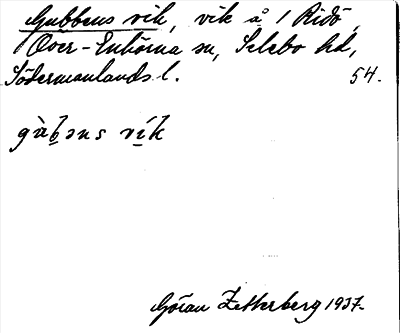 Gubbens vik, vik å 1 Ridö,
Över-Enhörna sn, Selebo hd,
Södermanlands l. 54.
gàb̲əns vi̲k
Göran Zetterberg 1937.